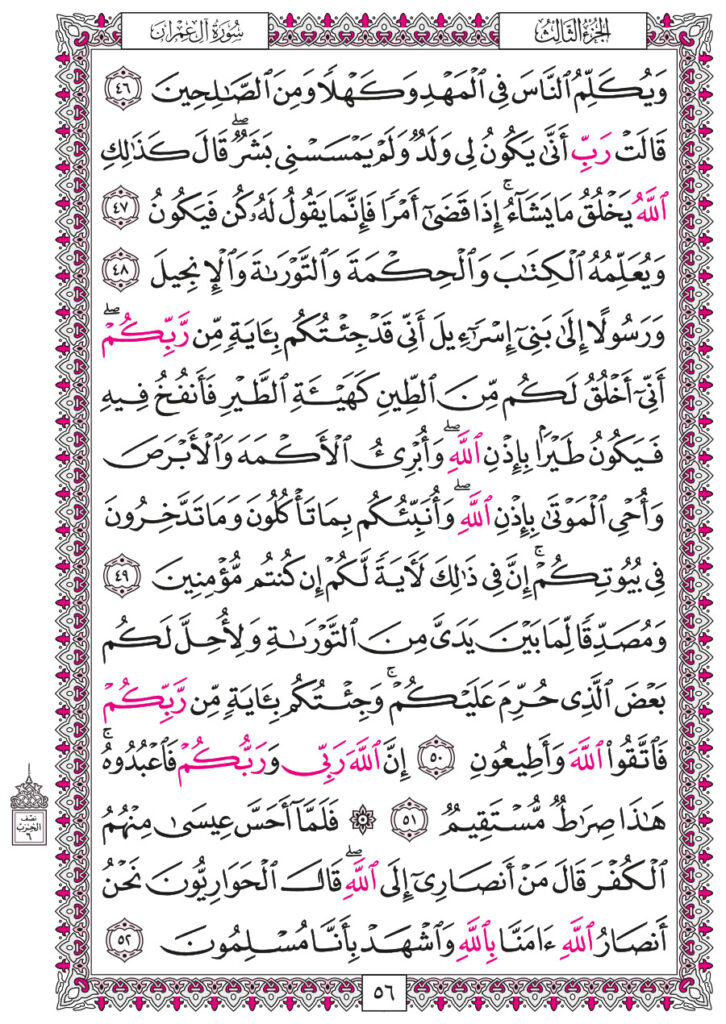 الجزء الثالث
سورة آل عمران
وَيُكَلِّمُ ٱلنَّاسَ فِي ٱلْمَهْدِ وَكَهْلًا وَمِنَ ٱلصَّٰلِحِينَ ٤٦
قَالَتْ رَبِّ أَنَّىٰ يَكُونُ لِي وَلَدٌ وَلَمْ يَمْسَسْنِي بَشَرٌ ۖ قَالَ كَذَٰلِكِ
ٱللَّهُ يَخْلُقُ مَا يَشَآءُ ۚ إِذَا قَضَىٰٓ أَمْرًا فَإِنَّمَا يَقُولُ لَهُۥ كُن فَيَكُونُ ٤٧
وَيُعَلِّمُهُ ٱلْكِتَٰبَ وَٱلْحِكْمَةَ وَٱلتَّوْرَىٰةَ وَٱلْإِنجِيلَ ٤٨
وَرَسُولًا إِلَىٰ بَنِيٓ إِسْرَٰٓءِيلَ أَنِّي قَدْ جِئْتُكُم بِـَٔايَةٍ مِّن رَّبِّكُمْ ۖ
أَنِّيٓ أَخْلُقُ لَكُم مِّنَ ٱلطِّينِ كَهَيْـَٔةِ ٱلطَّيْرِ فَأَنفُخُ فِيهِ
فَيَكُونُ طَيْرًۢا بِإِذْنِ ٱللَّهِ ۖ وَأُبْرِئُ ٱلْأَكْمَهَ وَٱلْأَبْرَصَ
وَأُحْيِ ٱلْمَوْتَىٰ بِإِذْنِ ٱللَّهِ ۖ وَأُنَبِّئُكُم بِمَا تَأْكُلُونَ وَمَا تَدَّخِرُونَ
فِي بُيُوتِكُمْ ۚ إِنَّ فِي ذَٰلِكَ لَـَٔايَةً لَّكُمْ إِن كُنتُم مُّؤْمِنِينَ ٤٩
وَمُصَدِّقًا لِّمَا بَيْنَ يَدَيَّ مِنَ ٱلتَّوْرَىٰةِ وَلِأُحِلَّ لَكُم
بَعْضَ ٱلَّذِي حُرِّمَ عَلَيْكُمْ ۚ وَجِئْتُكُم بِـَٔايَةٍ مِّن رَّبِّكُمْ
فَٱتَّقُوا۟ ٱللَّهَ وَأَطِيعُونِ ٥٠ إِنَّ ٱللَّهَ رَبِّي وَرَبُّكُمْ فَٱعْبُدُوهُ ۚ
هَٰذَا صِرَٰطٌ مُّسْتَقِيمٌ ٥١ ۞ فَلَمَّآ أَحَسَّ عِيسَىٰ مِنْهُمُ
ٱلْكُفْرَ قَالَ مَنْ أَنصَارِيٓ إِلَى ٱللَّهِ ۖ قَالَ ٱلْحَوَارِيُّونَ نَحْنُ
أَنصَارُ ٱللَّهِ ءَامَنَّا بِٱللَّهِ وَٱشْهَدْ بِأَنَّا مُسْلِمُونَ ٥٢
نصف
الحزب
٦
٥٦